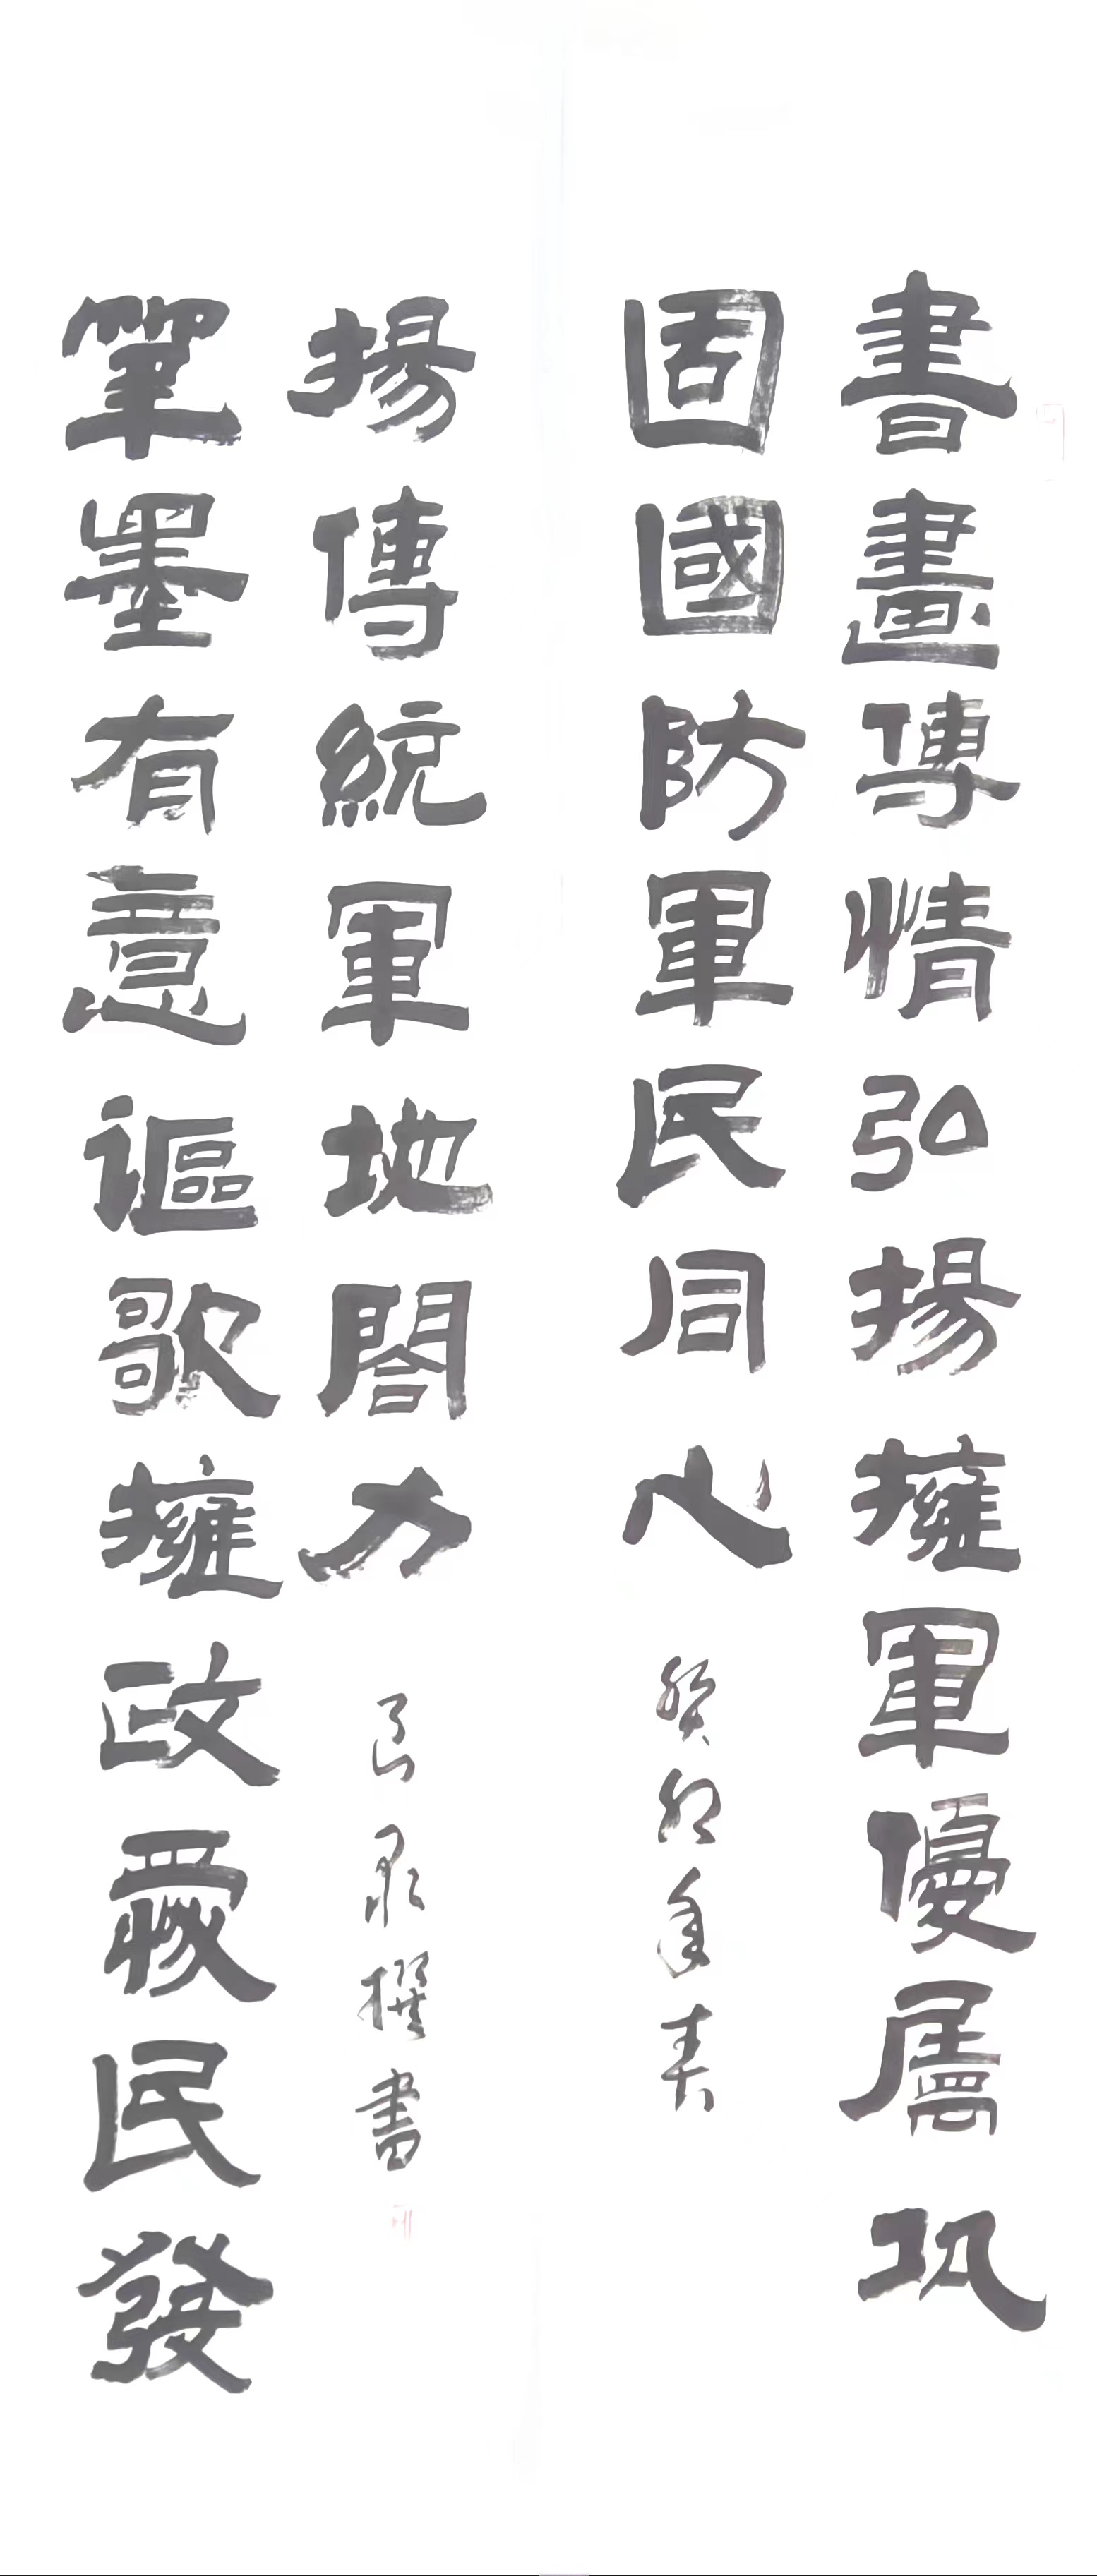 書畫傳情弘揚擁軍優屬巩
固國防軍民同心
癸卯年春
筆墨有意謳歌擁政愛民發
揚傳統軍地合力
撰書